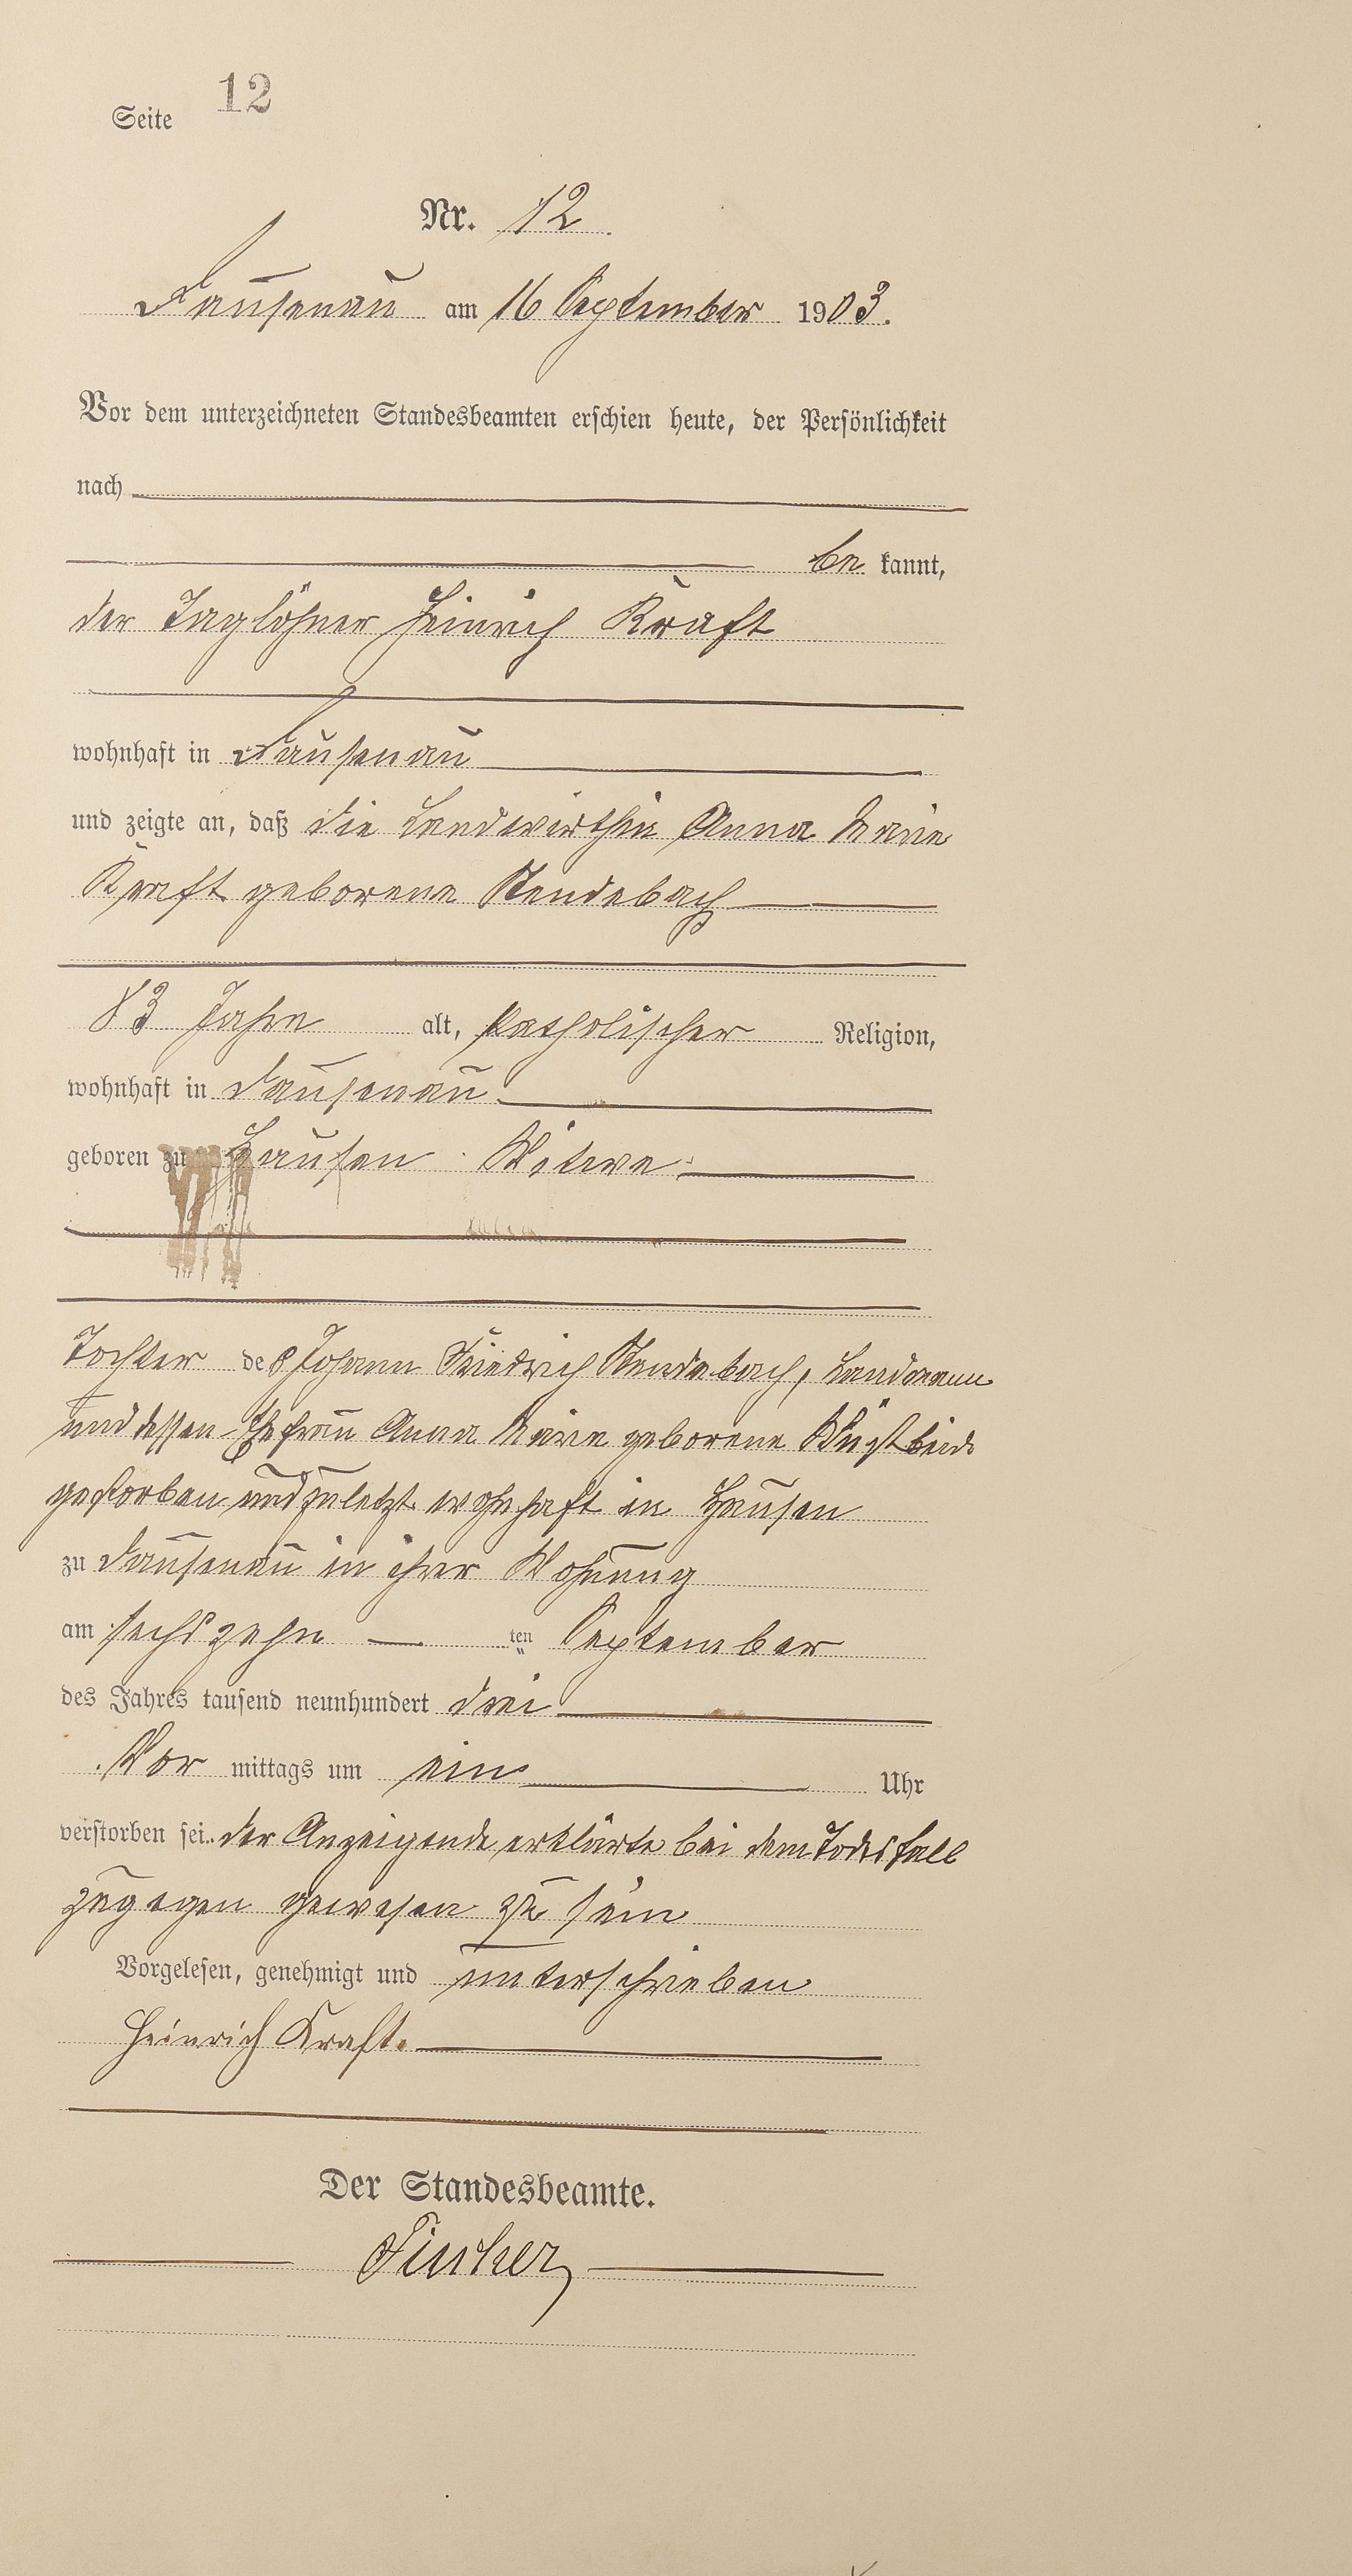 Seite 12
Nr. 12
Dausenau am 16 September 1903.
Vor dem unterzeichneten Standesbeamten erschien heute, der Persönlichkeit
nach
be kannt,
der Taglöhner Heinrich Kraft
wohnhaft in Dausenau
und zeigte an, daß die Landwirthin Anna Marie
Kraft geborene Stendebach
83 Jahre alt, katholischer Religion,
wohnhaft in Dausenau
geboren zu Hausen Witwe
Tochter des Johann Friedrich Stendebach, Landmann
und dessen Ehefrau Anna Marie geborene Wüst beide
gestorben und zuletzt wohnhaft in Hausen
zu Dausenau in ihrer Wohnung
am sechszehn ten September
des Jahres tausend neunhundert drei
Vor mittags um ein Uhr
verstorben sei. der Anzeigende erklärte bei dem Todesfall
zugegen gewesen zu sein
Vorgelesen, genehmigt und unterschrieben
Heinrich Kraft.
Der Standesbeamte.